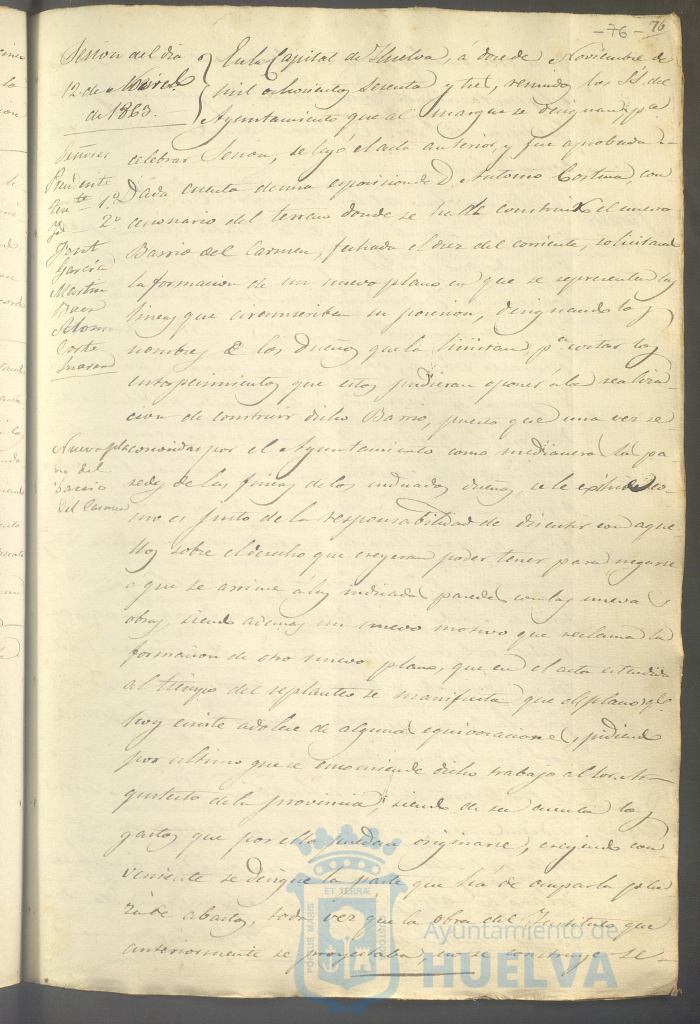 -76- 76
Sesion del dia
12 de Noviembre
de 1863.
En la Capital de Huelva, á doce de Noviembre de
mil ochocientos sesenta y tres, reunidos los SS. del
Ayuntamiento que al margen se designan pª
celebrar Sesion, se leyó el acta anterior, y fue aprobada.
Señores
Presidente
Tente 1.º
Yd 2.º
García
Martin
Corte
Suarez
Dada cuenta de una esposicion de D. Antonio Cortina, con
cesionario del terreno donde se ha de construir el nuevo
Barrio del Carmen, fechada el diez del corriente, solicitando
la formacion de un nuevo plano en que se representen las
lineas que circunscriben su posesion, designando los
nombres de los dueños que la limitan, pª evitar los
entorpecimientos que estos pudieran oponer á la realiza
cion de construir dicho Barrio, puesto que una vez re
Nuevo pla
no del
Barrio
del Carmen
conocidas por el Ayuntamiento como medianeras las pa
redes de las fincas de los indicados dueños, se le exhime co
mo es justo de la responsabilidad de discutir con aque
llos sobre el derecho que creyeran poder tener para negarse
a que se arrime á las indicadas paredes con las nuevas
obras, siendo ademas un nuevo motivo que reclama la
formacion de otro nuevo plano, que en el acta estendida
al tiempo del replanteo se manifiesta que el plano que
hoy existe adolece de algunas equivocaciones, pidiendo
por ultimo que se encomiende dicho trabajo al Sor. Ar
quitecto de la provincia, siendo de su cuenta los
gastos que por ello puedan originarse, creyendo con
veniente se designe la parte que há de ocupar la pla
za de abastos, toda vez que la obra del Instituto que
anteriormente se proyectaba, no se construye. Se
ET TERRÆ
PORTUS MARIS
CUSTODIA
Ayuntamiento de
HUELVA